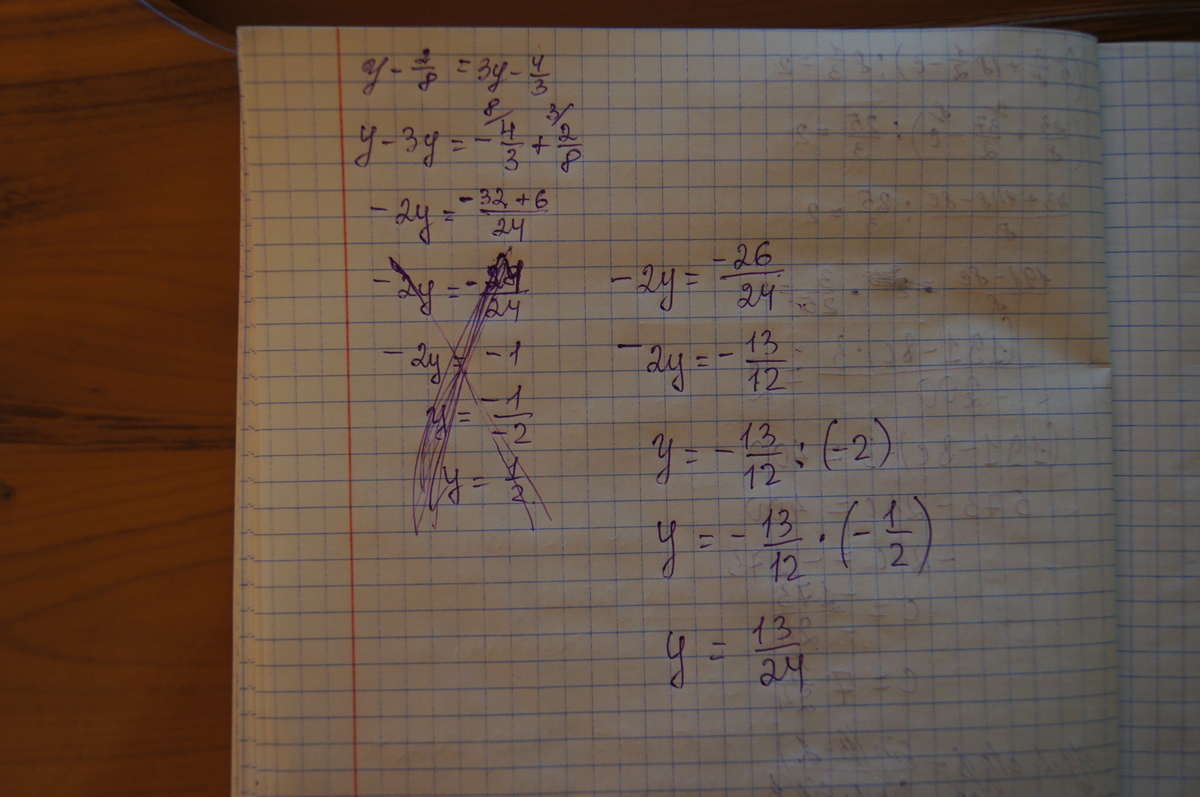 y - 2/8 = 3y - 4/3
y - 3y = - 8/ 4/3 + 3/ 2/8
- 2y = (-32 + 6)/24
- 2y = - /24
- 2y = - 1
y = -1/-2
y = 1/2
- 2y = -26/24
- 2y = - 13/12
y = - 13/12 : (-2)
y = - 13/12 · (- 1/2)
y = 13/24